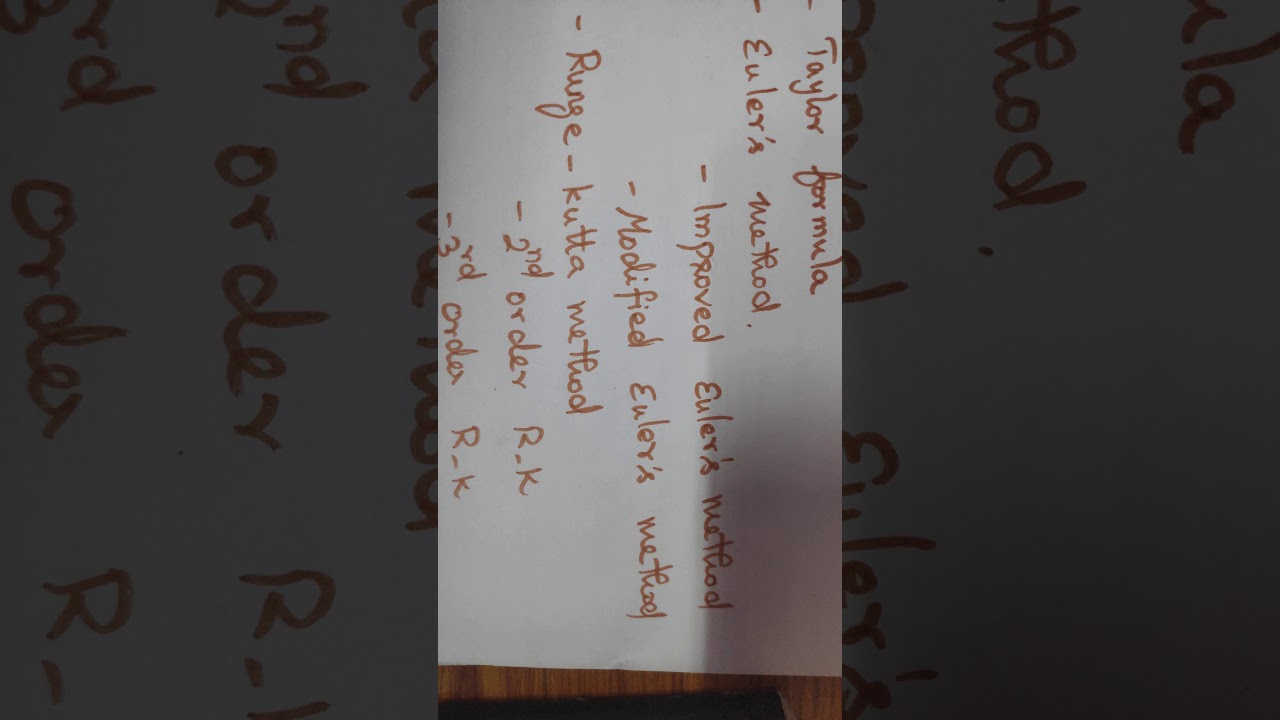 - Taylor formula
- Euler's method.
- Improved Euler's method
- Modified Euler's method
- Runge-kutta method
- 2nd order R-K
- 3rd order R-K